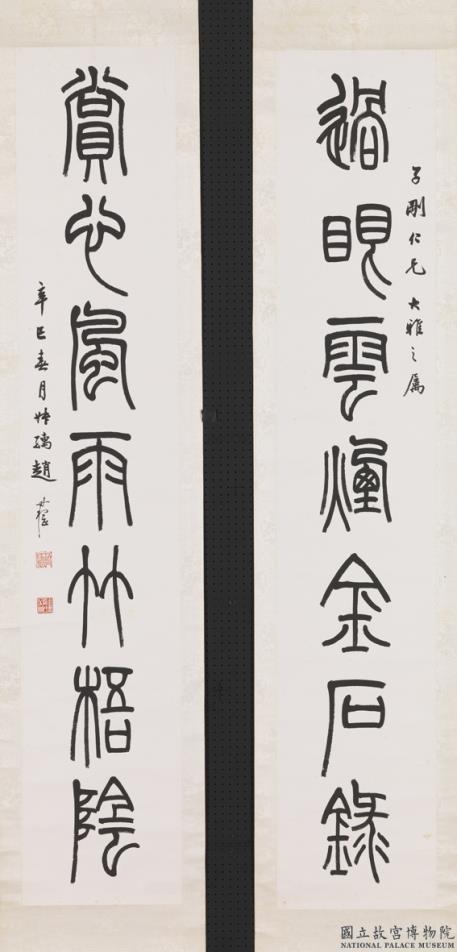 子剛仁兄大雅之屬
過眼雲煙金石錄
賞心風雨竹梧陰
辛巳春月趙
國立故宮博物院
NATIONAL PALACE MUSEUM